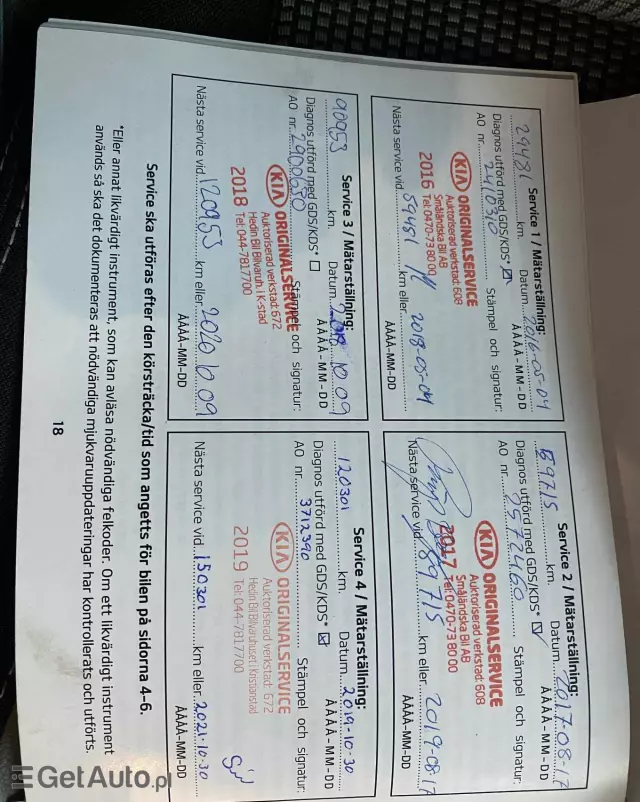 Service 1 / Mätarställning:
29481 km. Datum 2016-05-04
ÅÅÅÅ-MM-DD
Diagnos utförd med GDS/KDS*
AO nr. 2410310 Stämpel och signatur:
KIA ORIGINALSERVICE
Auktoriserad verkstad: 608
Småländska Bil AB
2016 Tel: 0470-73 80 00
Nästa service vid 59481 km eller 2018-05-04
ÅÅÅÅ-MM-DD
Service 2 / Mätarställning:
59715 km. Datum 2017-08-17
ÅÅÅÅ-MM-DD
Diagnos utförd med GDS/KDS*
AO nr. 2572460 Stämpel och signatur:
KIA ORIGINALSERVICE
Auktoriserad verkstad: 608
Småländska Bil AB
2017 Tel: 0470-73 80 00
Nästa service vid 89715 km eller 2019-08-17
ÅÅÅÅ-MM-DD
Service 3 / Mätarställning:
90953 km. Datum 10.09
ÅÅÅÅ-MM-DD
Diagnos utförd med GDS/KDS*
AO nr. Stämpel och signatur:
KIA ORIGINALSERVICE
Auktoriserad verkstad: 672
Hedin Bil Bilvaruh. i K-stad
2018 Tel: 044-7817700
Nästa service vid 120953 km eller 2020 10 09
ÅÅÅÅ-MM-DD
Service 4 / Mätarställning:
120301 km. Datum 2019-10-30
ÅÅÅÅ-MM-DD
Diagnos utförd med GDS/KDS*
AO nr. 3712390 Stämpel och signatur:
KIA ORIGINALSERVICE
Auktoriserad verkstad: 672
Hedin Bil Bilvaruhuset i Kristianstad
2019 Tel: 044-7817700
Nästa service vid 150301 km eller 2021-10-30
ÅÅÅÅ-MM-DD
Service ska utföras efter den körsträcka/tid som angetts för bilen på sidorna 4-6.
*Eller annat likvärdigt instrument, som kan avläsa nödvändiga felkoder. Om ett likvärdigt instrument
används så ska det dokumenteras att nödvändiga mjukvaruuppdateringar har kontrollerats och utförts.
18
GetAuto.pl